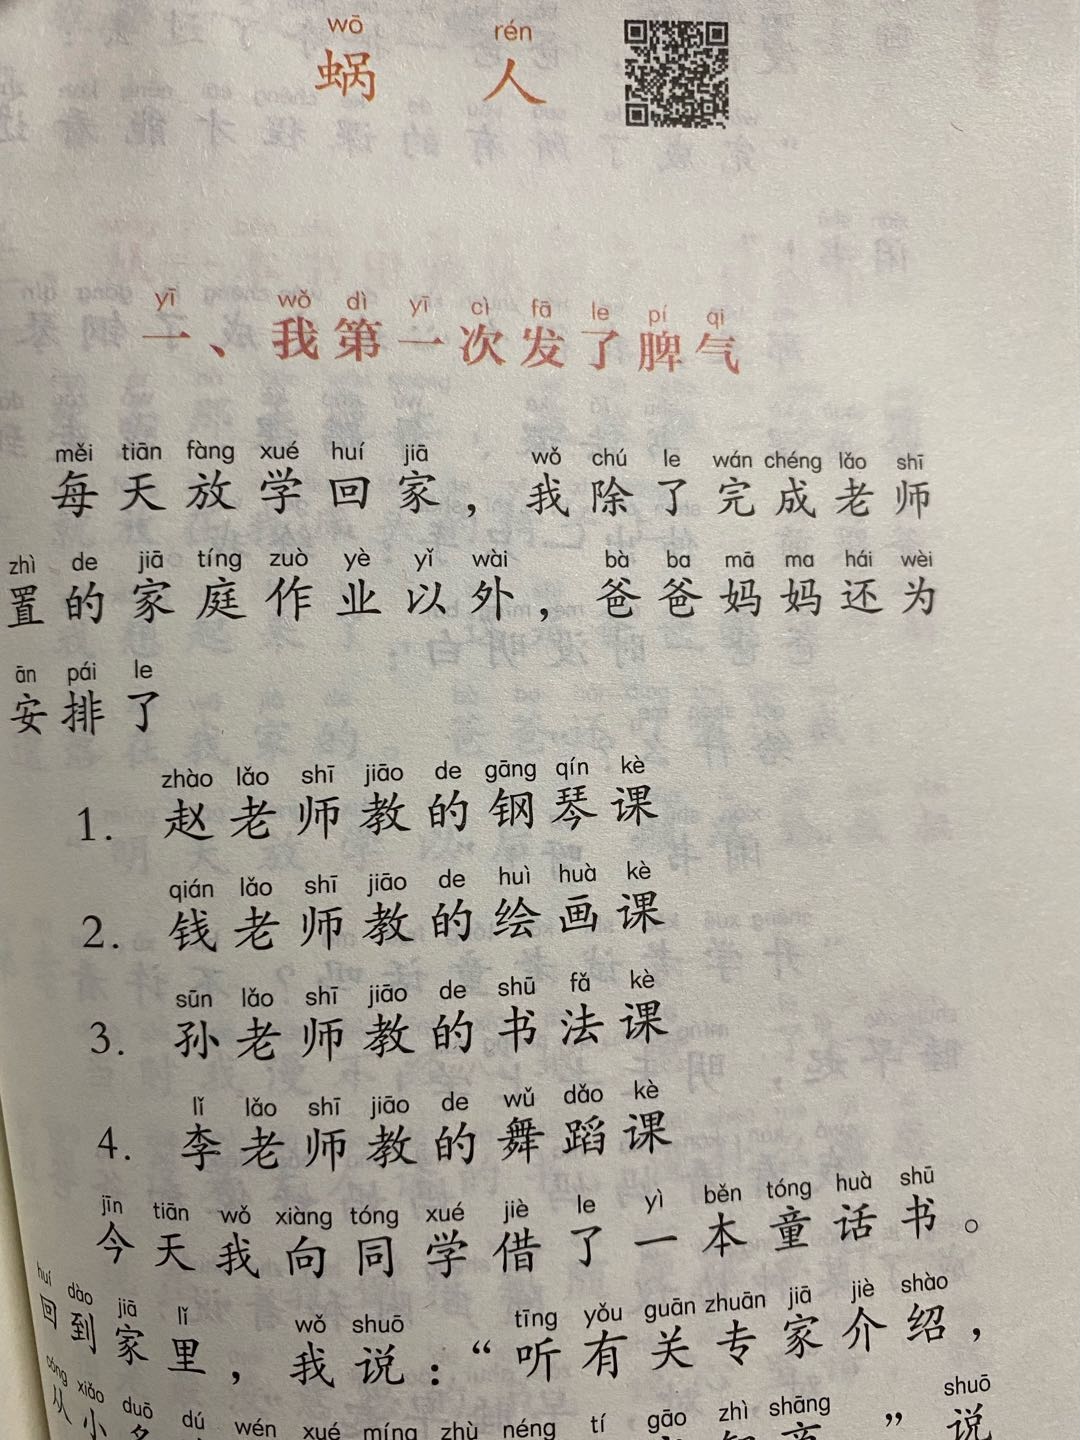 wō rén
蜗 人
yī wǒ dì yī cì fā le pí qi
一、我第一次发了脾气
měi tiān fàng xué huí jiā wǒ chú le wán chéng lǎo shī
每天放学回家，我除了完成老师
zhì de jiā tíng zuò yè yǐ wài bà ba mā ma hái wèi
置的家庭作业以外，爸爸妈妈还为
ān pái le
安排了
zhào lǎo shī jiāo de gāng qín kè
1. 赵老师教的钢琴课
qián lǎo shī jiāo de huì huà kè
2. 钱老师教的绘画课
sūn lǎo shī jiāo de shū fǎ kè
3. 孙老师教的书法课
lǐ lǎo shī jiāo de wǔ dǎo kè
4. 李老师教的舞蹈课
jīn tiān wǒ xiàng tóng xué jiè le yì běn tóng huà shū
今天我向同学借了一本童话书。
huí dào jiā lǐ wǒ shuō tīng yǒu guān zhuān jiā jiè shào
回到家里，我说：“听有关专家介绍，
cóng xiǎo duō dú wén xué míng zhù néng tí gāo zhì shāng shuō
从小多 ” 说